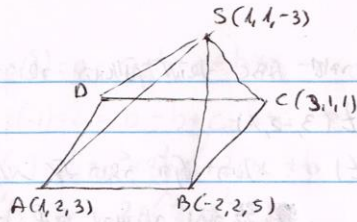 S(1,1,-3)
D
C(3,1,1)
A(1,2,3)
B(-2,2,5)